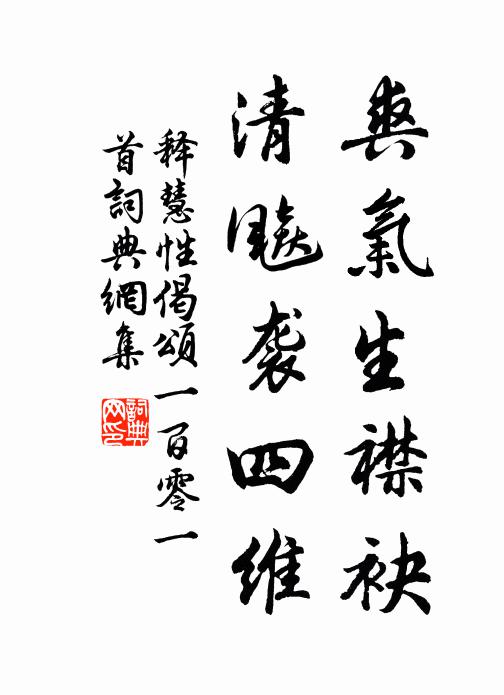 爽氣生襟袂
清飈袭四維
释慧性偈頌一百零一
首詞典網集
詞典网印